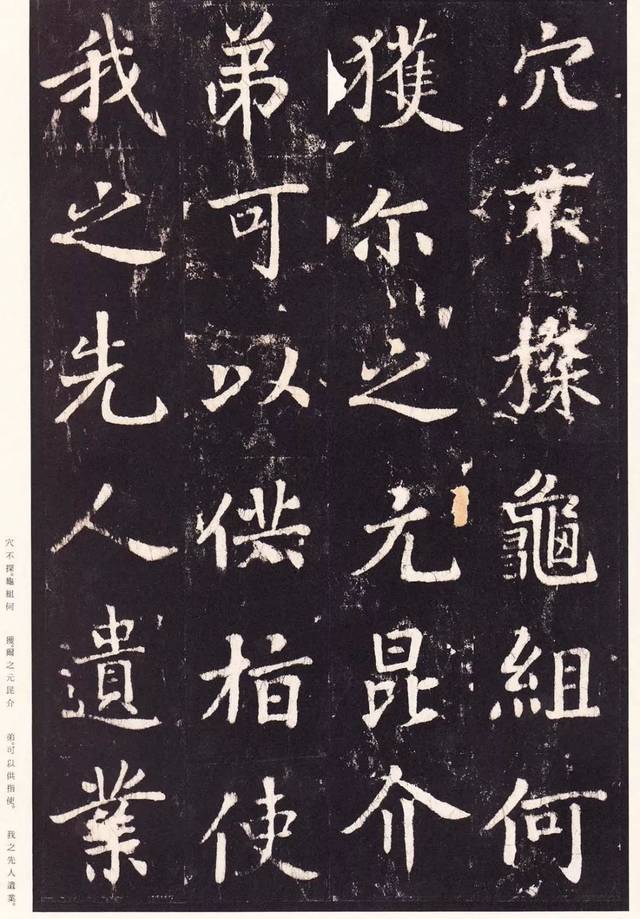 穴探龜組何
獲尔之元昆介
弟可以供指使
我之先人遺業
穴不探。龜組何　獲爾之元昆介　弟。可以供指使。　我之先人遺業。